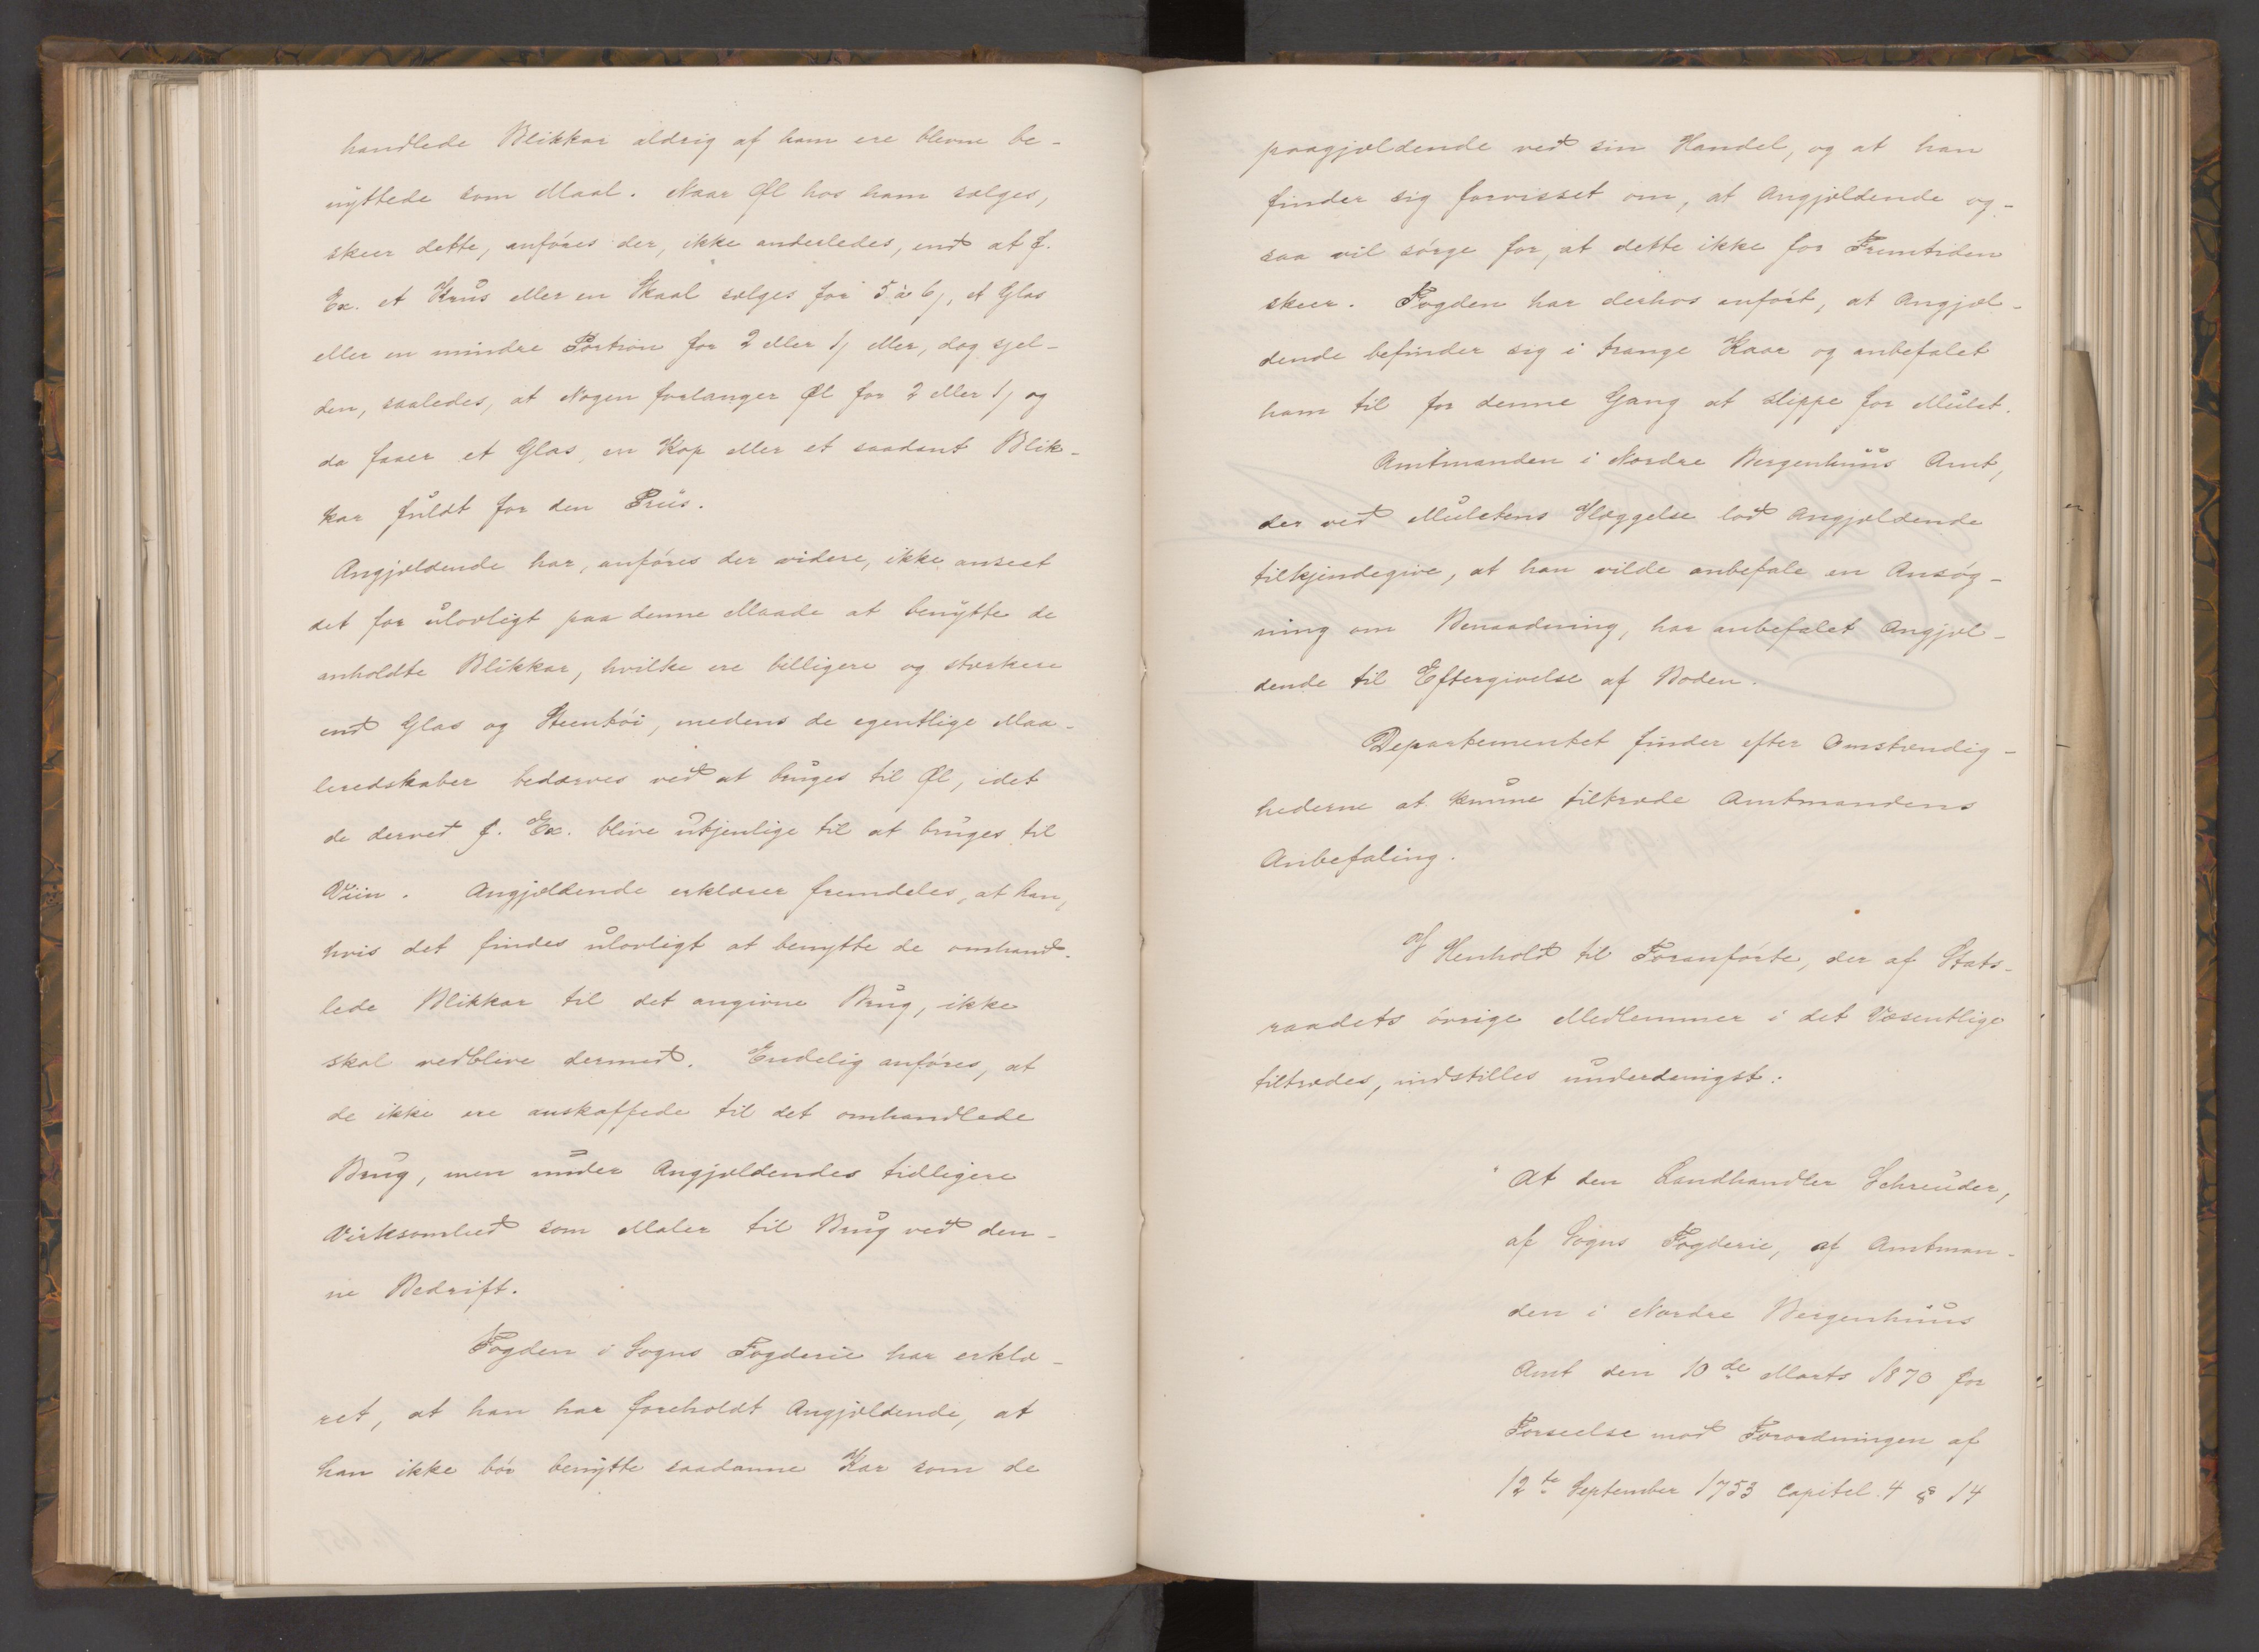 handlede Blikkar aldrig af ham ere blevne be-
nyttede som Maal. Naar Øl hos ham sælges,
skeer dette, anføres der, ikke anderledes, end at f.
Ex. et Krus eller en Skaal sælges for 5 à 6 ß, et Glas
eller en mindre Portion for 2 eller 1 ß eller, dog sjel-
den, saaledes, at Nogen forlanger Øl for 2 eller 1 ß og
da faaer et Glas, en Kop eller et saadant Blik-
kar fuldt for den Priis.
Angjældende har, anføres der videre, ikke anseet
det for ulovligt paa denne Maade at benytte de
anholdte Blikkar, hvilke ere billigere og stærkere
end Glas og Steentøi, medens de egentlige Maa-
leredskaber bedærves ved at bruges til Øl, idet
de derved f. Ex. blive utjenlige til at bruges til
Viin. Angjældende erklærer fremdeles, at han,
hvis det findes ulovligt at benytte de omhand-
lede Blikkar til det angivne Brug, ikke
skal vedblive dermed. Endelig anføres, at
de ikke ere anskaffede til det omhandlede
Brug, men under Angjældendes tidligere
Virksomhed som Maler til Brug ved den-
ne Bedrift.
Fogden i Sogns Fogderie har erklæ-
ret, at han har foreholdt Angjældende, at
han ikke bør benytte saadanne Kar som de
paagjældende ved sin Handel, og at han
finder sig forvisset om, at Angjældende og-
saa vil sørge for, at dette ikke for Fremtiden
skeer. Fogden har derhos anført, at Angjæl-
dende befinder sig i trange Kaar og anbefalet
ham til for denne Gang at slippe for Mulct.
Amtmanden i Nordre Bergenhuus Amt,
der ved Mulctens Ilæggelse lod Angjældende
tilkjendegive, at han vilde anbefale en Ansøg-
ning om Benaadning, har anbefalet Angjæl-
dende til Eftergivelse af Boden.
Departementet finder efter Omstændig-
hederne at kunne tiltræde Amtmandens
Anbefaling.
I Henhold til Foranførte, der af Stats-
raadets øvrige Medlemmer i det Væsentlige
tiltrædes, indstilles underdanigst:
At den Landhandler Schreuder,
af Sogns Fogderie, af Amtman-
den i Nordre Bergenhuus
Amt den 10de Marts 1870 for
Forseelse mod Forordningen af
12te September 1753 Capitel 4 § 14